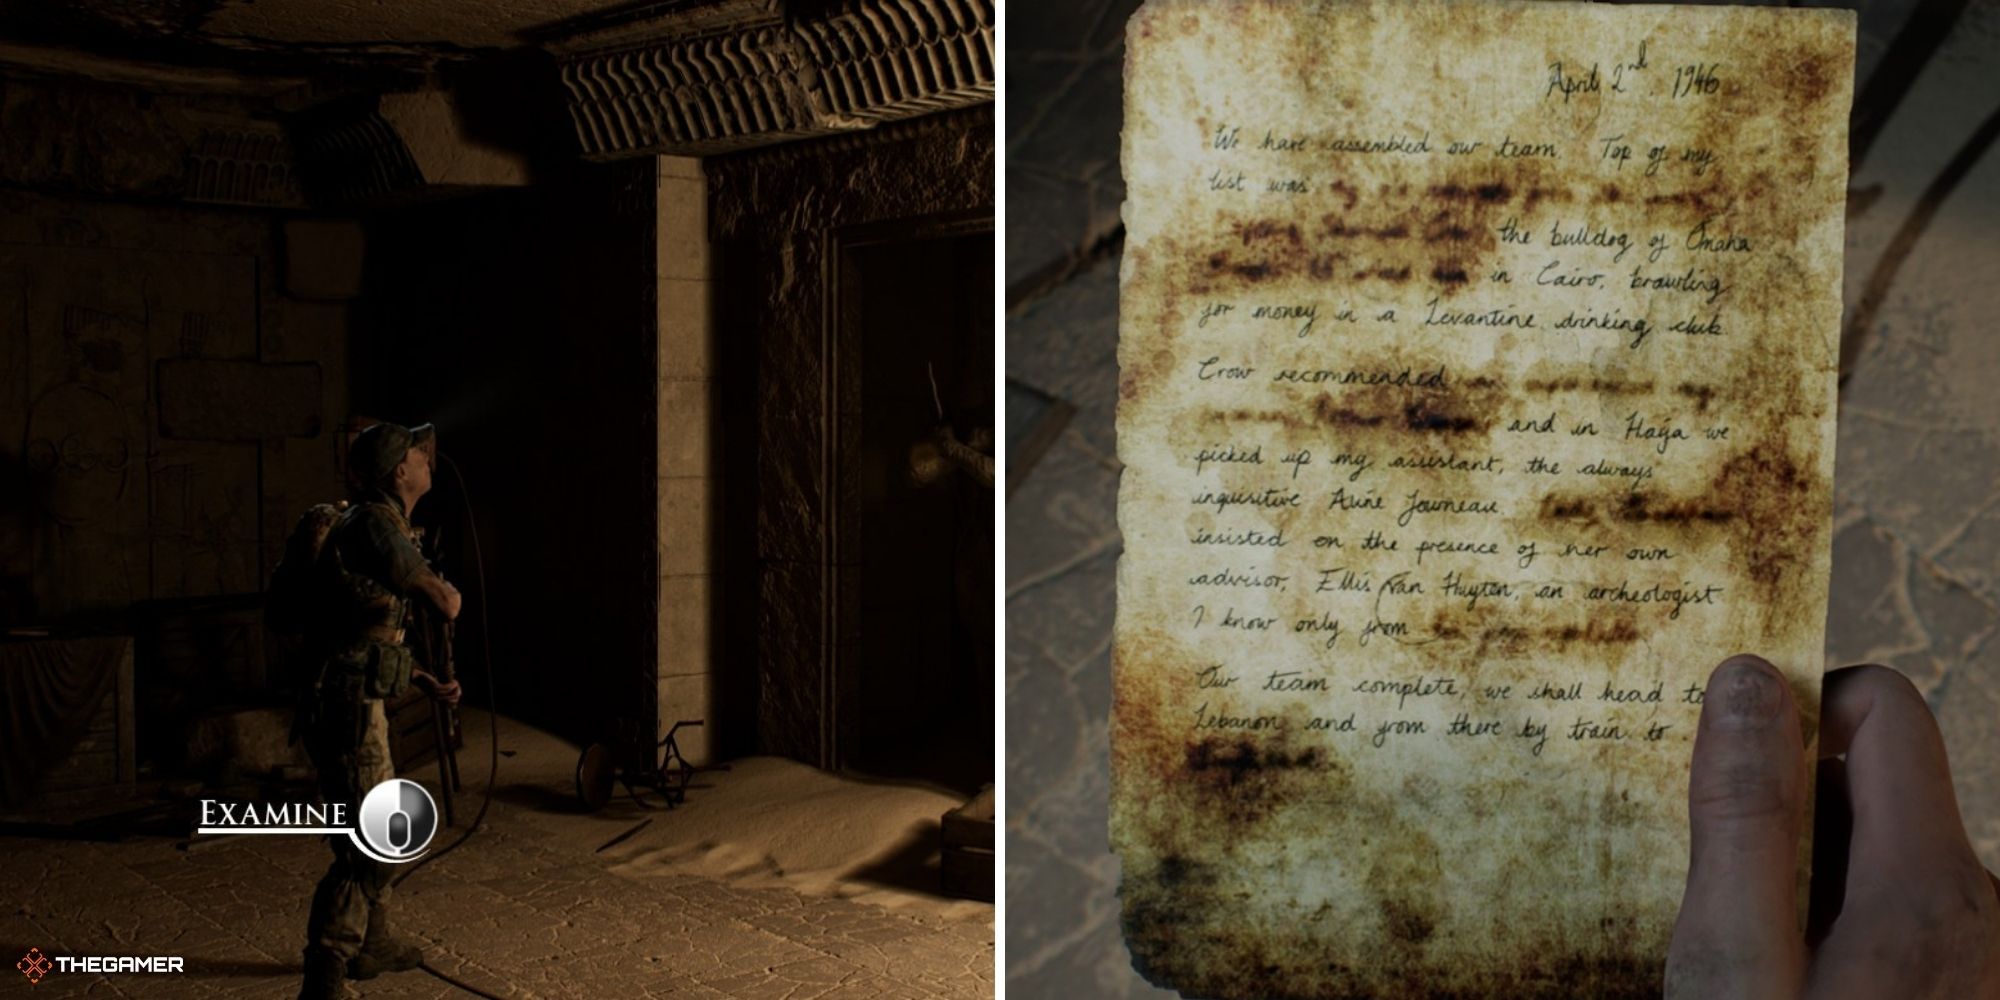 EXAMINE
THEGAMER
April 2nd, 1946
We have assembled our team. Top of my
list was
the bulldog of Omaha
in Cairo, brawling
for money in a Levantine drinking club
Crow recommended
and in Haifa we
picked up my assistant, the always
inquisitive Aline Journeau.
insisted on the presence of her own
advisor, Ellis Van Huyten, an archeologist
I know only from
Our team complete, we shall head to
Lebanon and from there by train to